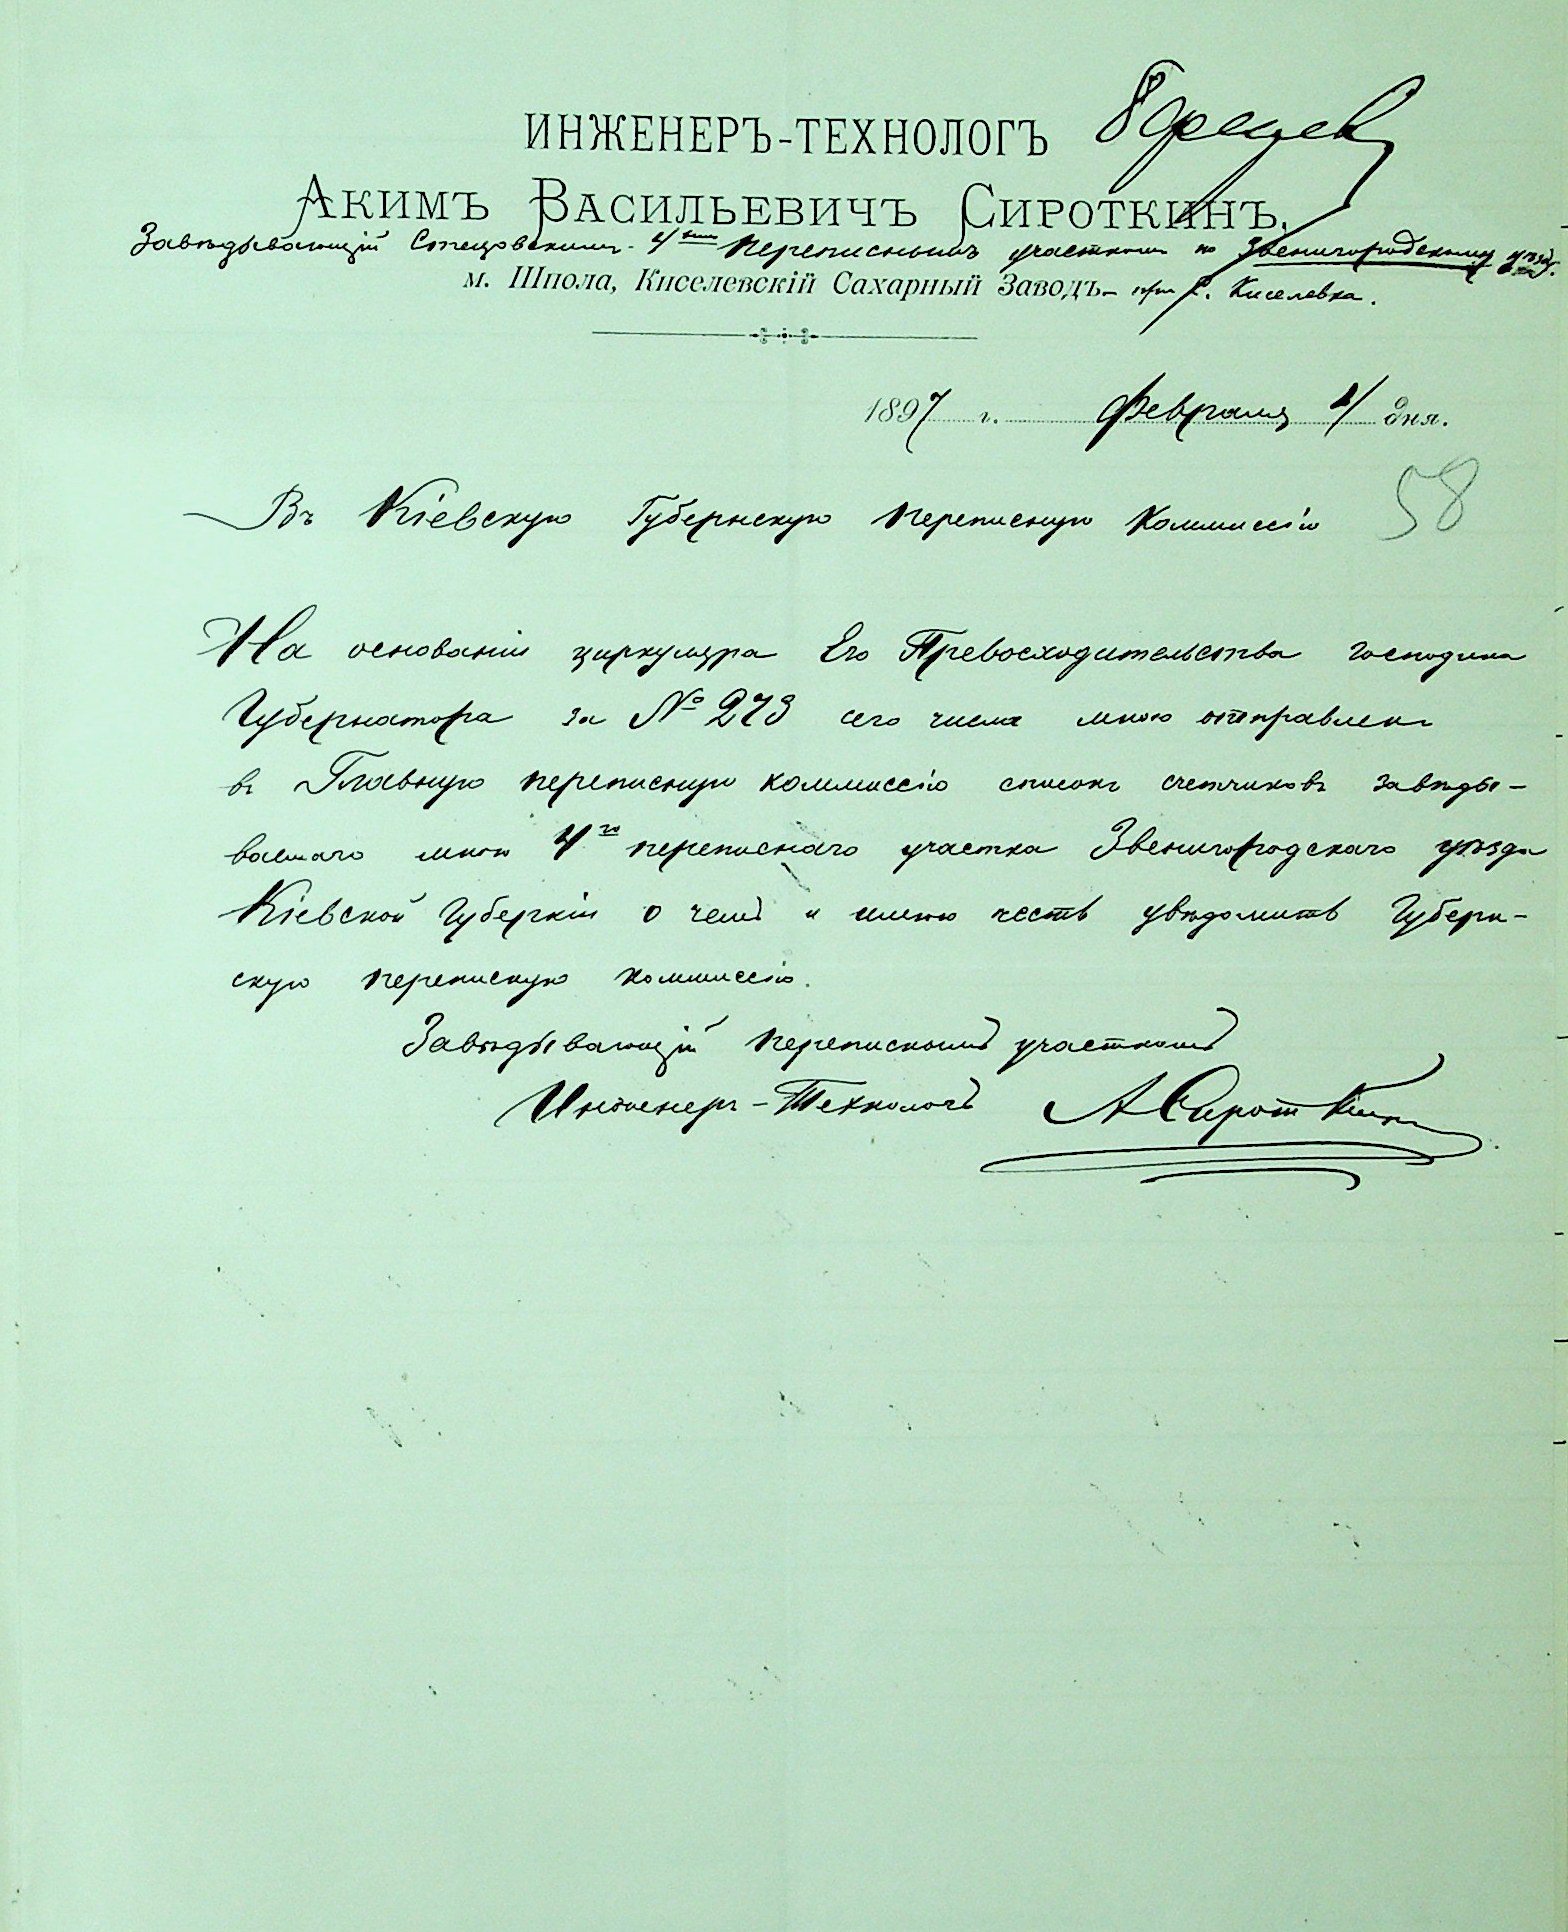 ИНЖЕНЕРЪ-ТЕХНОЛОГЪ
АКИМЪ ВАСИЛЬЕВИЧЪ СИРОТКИНЪ.
Завѣдывающій 4ымъ переписнымъ участкомъ по Звенигородскому уѣзду.
м. Шпола, Киселевскій Сахарный Заводъ - при С. Киселевка.
1897 г. Февраля дня.
58
Въ Кіевскую Губернскую переписную Коммиссію
На основаніи циркуляра Его Превосходительства господина
Губернатора за № 273 сего числа мною отправленъ
въ Главную переписную коммиссію списокъ счетчиковъ завѣды-
ваемаго мною 4го переписнаго участка Звенигородскаго уѣзда
Кіевской Губерніи о чемъ и имѣю честь увѣдомить Губерн-
скую переписную коммиссію.
Завѣдывающій переписнымъ участкомъ
Инженеръ-Технологъ А Сироткинъ